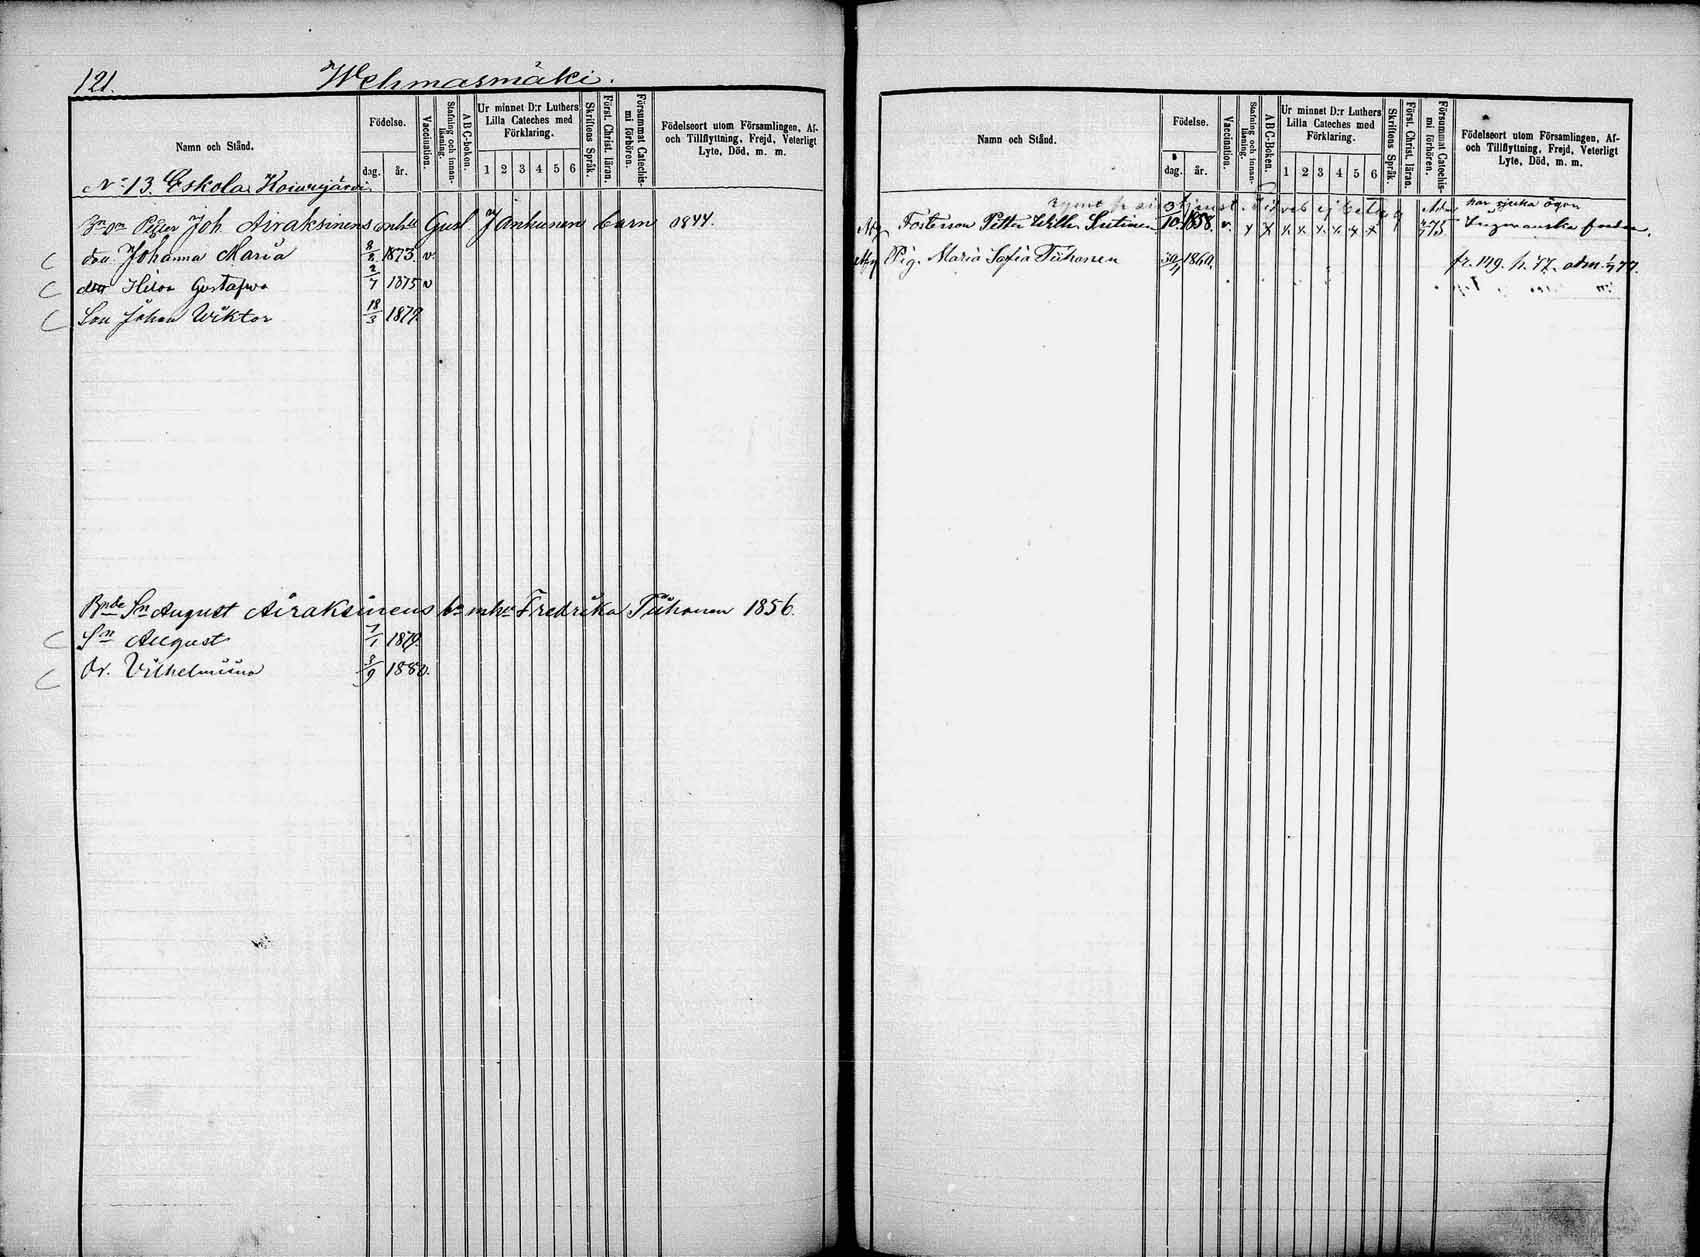 121. Wehmasmäki.
Namn och Stånd.
Födelse.
dag. år.
Vaccination.
Stafning och innanläsning.
ABC-boken.
Ur minnet D:r Luthers Lilla Cateches med Förklaring.
1 2 3 4 5 6
Skriftens Språk.
Först. Christ. läran.
Försummat Catechismi förhören.
Födelseort utom Församlingen, Af- och Tillflyttning, Frejd, Veterligt Lyte, Död, m. m.
N:o 13. Eskola, Koivujärvi
Petter Joh Airaksinens Gust Jankunen barn 1844.
dotr Johanna Maria 8/2 1873 v
dotr Hilda Gustafva 2/7 1875 v
Son Johan Wiktor 18/3 1879.
Bnde Sn August Airaksinens Fredrika Tiihonen 1856.
Sn August 7/1 1879.
Dr. Vilhelmiina 3/9 1880.
Namn och Stånd.
Födelse.
dag. år.
Vaccination.
Stafning och innanläsning.
ABC-boken.
Ur minnet D:r Luthers Lilla Cateches med Förklaring.
1 2 3 4 5 6
Skriftens Språk.
Först. Christ. läran.
Försummat Catechismi förhören.
Födelseort utom Församlingen, Af- och Tillflyttning, Frejd, Veterligt Lyte, Död, m. m.
har sjuka ögon
Fosterson Petter Wilh 3/10 1858. v. x x x x x x x x
Pig. Maria Sofia Tiihonen 30/4 1860. fr. 119. h. 77.